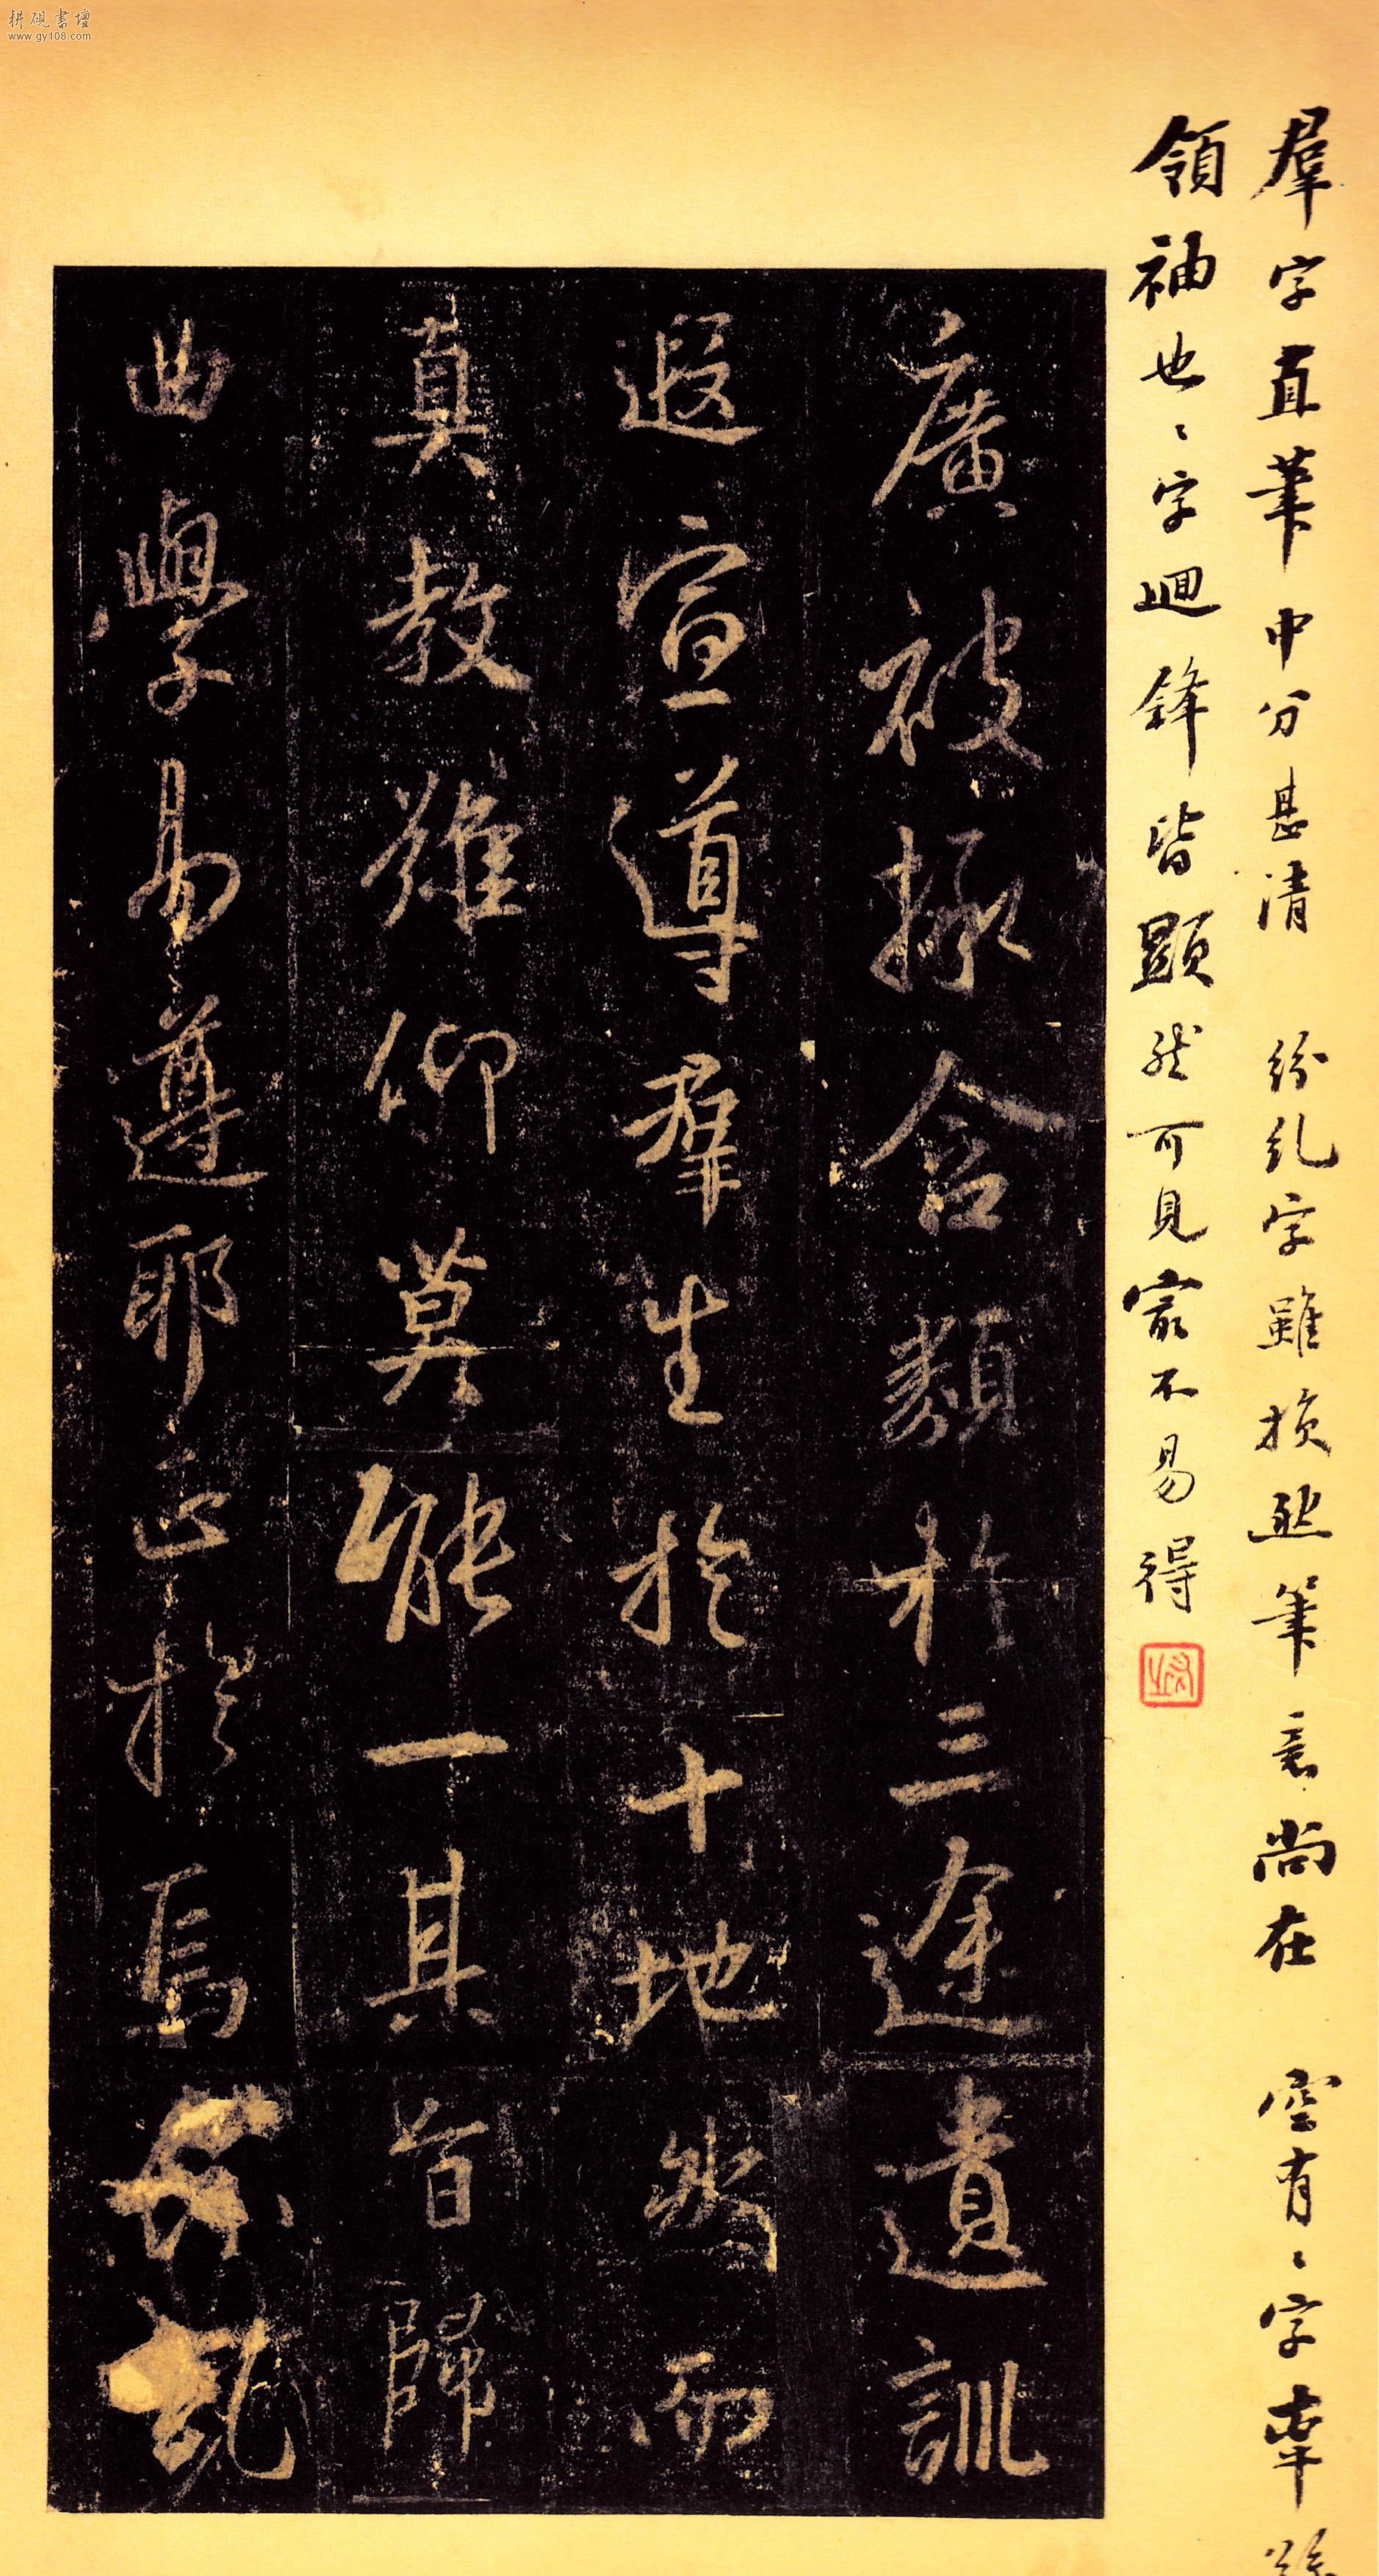 耕硯書壇
www.gy108.com
羣字直筆中分甚清 紛乱字雖損延筆意尚在 空有〻字率
領袖也〻字迴鋒皆顯然可見最不易得
廣被拯含類於三途遺訓
遐宣導羣生於十地然而
真教難仰莫能一其旨歸
曲學易遵耶正於焉紛乱